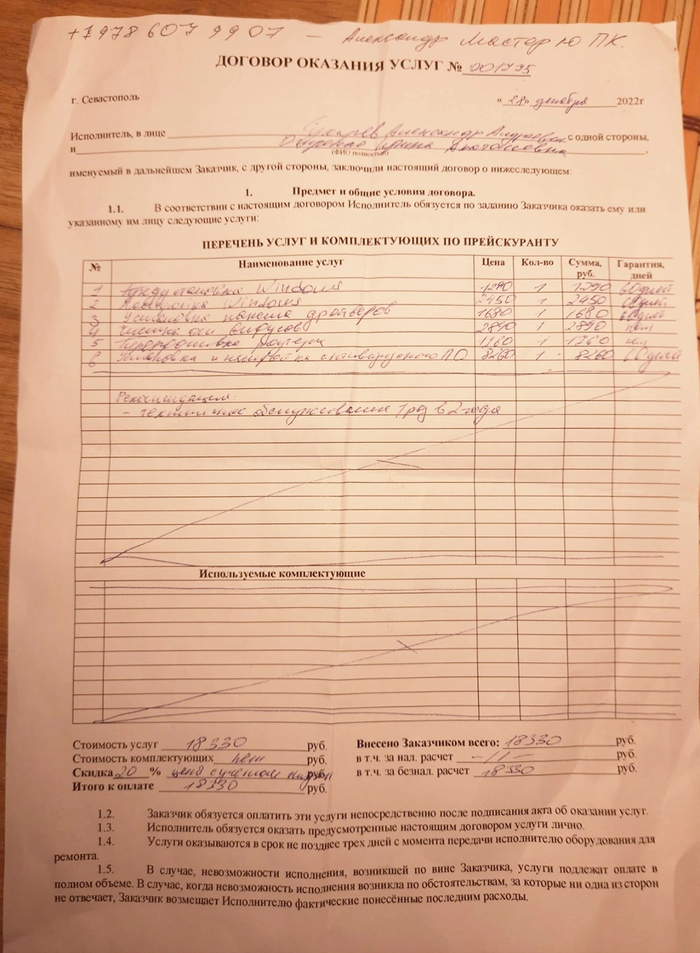 +7978 607 9907 – Александр Мастер Ю ПК.
ДОГОВОР ОКАЗАНИЯ УСЛУГ № 001795
г. Севастополь «28» декабря 2022г
Исполнитель, в лице Александр Андреевич с одной стороны,
и Ирина Анатольевна
(ФИО полностью)
именуемый в дальнейшем Заказчик, с другой стороны, заключили настоящий договор о нижеследующем:
1. Предмет и общие условия договора.
1.1. В соответствии с настоящим договором Исполнитель обязуется по заданию Заказчика оказать ему или
указанному им лицу следующие услуги:
ПЕРЕЧЕНЬ УСЛУГ И КОМПЛЕКТУЮЩИХ ПО ПРЕЙСКУРАНТУ
№ Наименование услуг Цена Кол-во Сумма, руб. Гарантия, дней
1 Windows 1290 1 1290 60 дней
2 Windows 2450 1 2450 60 дней
3 Установка пакета драйверов 1680 1 1680 60 дней
4 Чистка от вирусов 2890 1 2890 нет
5 1760 1 1760 нет
6 Установка и настройка ПО 8260 1 8260 60 дней
Рекомендации:
- техническое обслуживание 1 раз в 2 года
Используемые комплектующие
Стоимость услуг 18330 руб. Внесено Заказчиком всего: 18330 руб.
Стоимость комплектующих нет руб. в т.ч. за нал. расчет –//– руб.
Скидка 20 % цена с учетом скидки руб. в т.ч. за безнал. расчет 18330 руб.
Итого к оплате 18330 руб.
1.2. Заказчик обязуется оплатить эти услуги непосредственно после подписания акта об оказании услуг.
1.3. Исполнитель обязуется оказать предусмотренные настоящим договором услуги лично.
1.4. Услуги оказываются в срок не позднее трех дней с момента передачи исполнителю оборудования для
ремонта.
1.5. В случае, невозможности исполнения, возникшей по вине Заказчика, услуги подлежат оплате в
полном объеме. В случае, когда невозможность исполнения возникла по обстоятельствам, за которые ни одна из сторон
не отвечает, Заказчик возмещает Исполнителю фактические понесённые последним расходы.